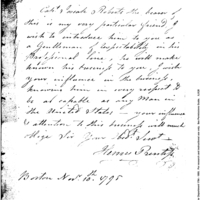 Capt Josiah Roberts the bearer of
this is my very particular friend I
wish to introduce him to you as
a Gentleman of respectability in his
Professional line, he will make
known his business to you. I wish
your influence in the business,
knowing him in every respect to
be as capable as any Man in
the United States — your influence
& attention to this business will much
Oblige Sir Your
Boston Nov. 16th 1795